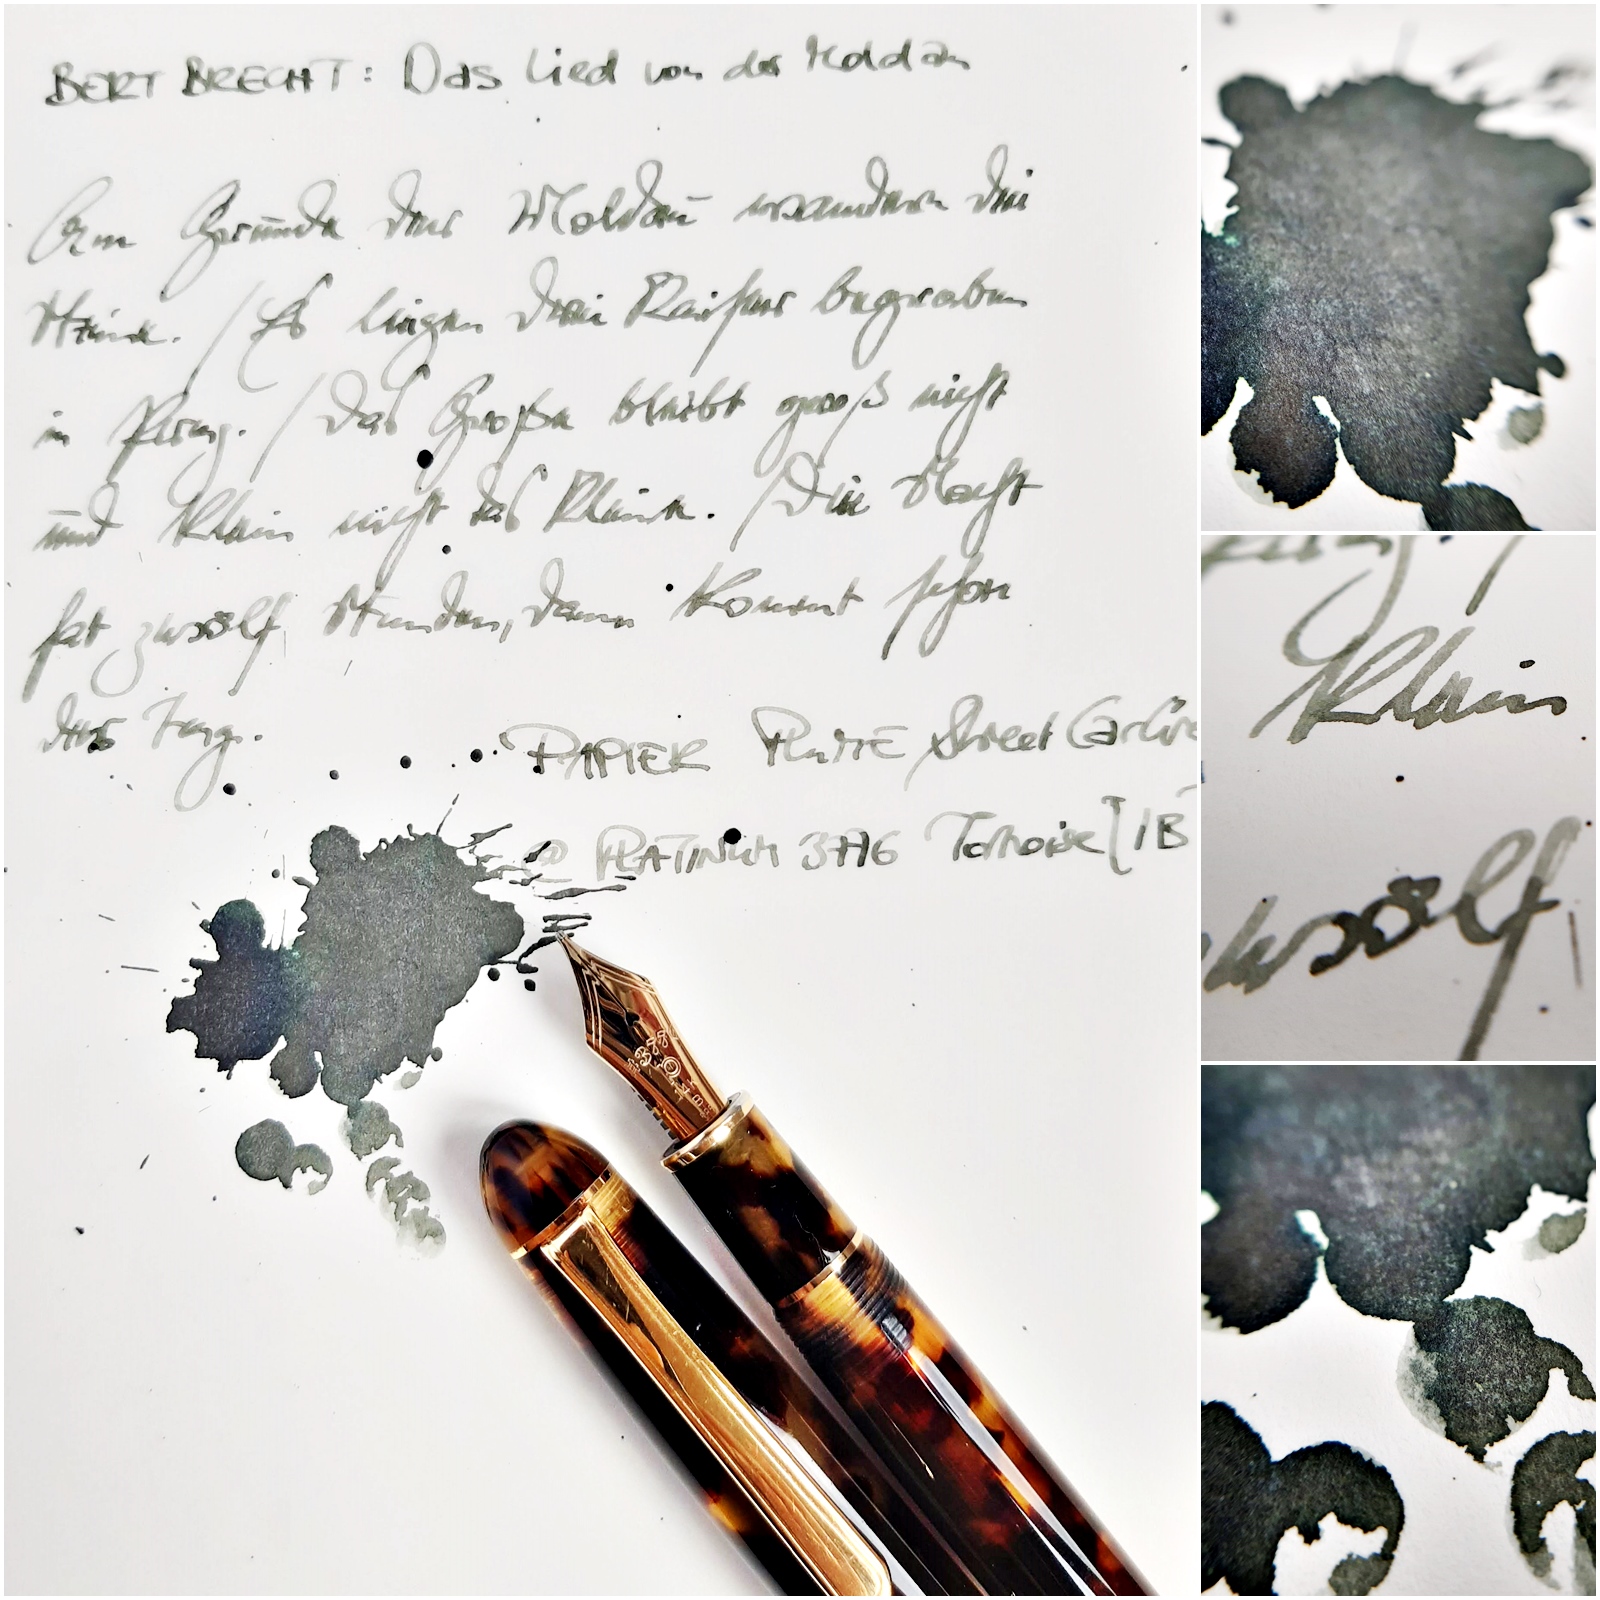 BERT BRECHT: Das Lied von der Moldau
Am Grunde der Moldau wandern die
Steine. / Es liegen drei Kaiser begraben
in Prag. / Das Große bleibt groß nicht
und klein nicht das Kleine. / Die Nacht
hat zwoölf Stunden, dann kommt schon
der Tag.
PAPIER Sweet
@ PLATINUM 3776 Tortoise [1B
Klein
zwoölf